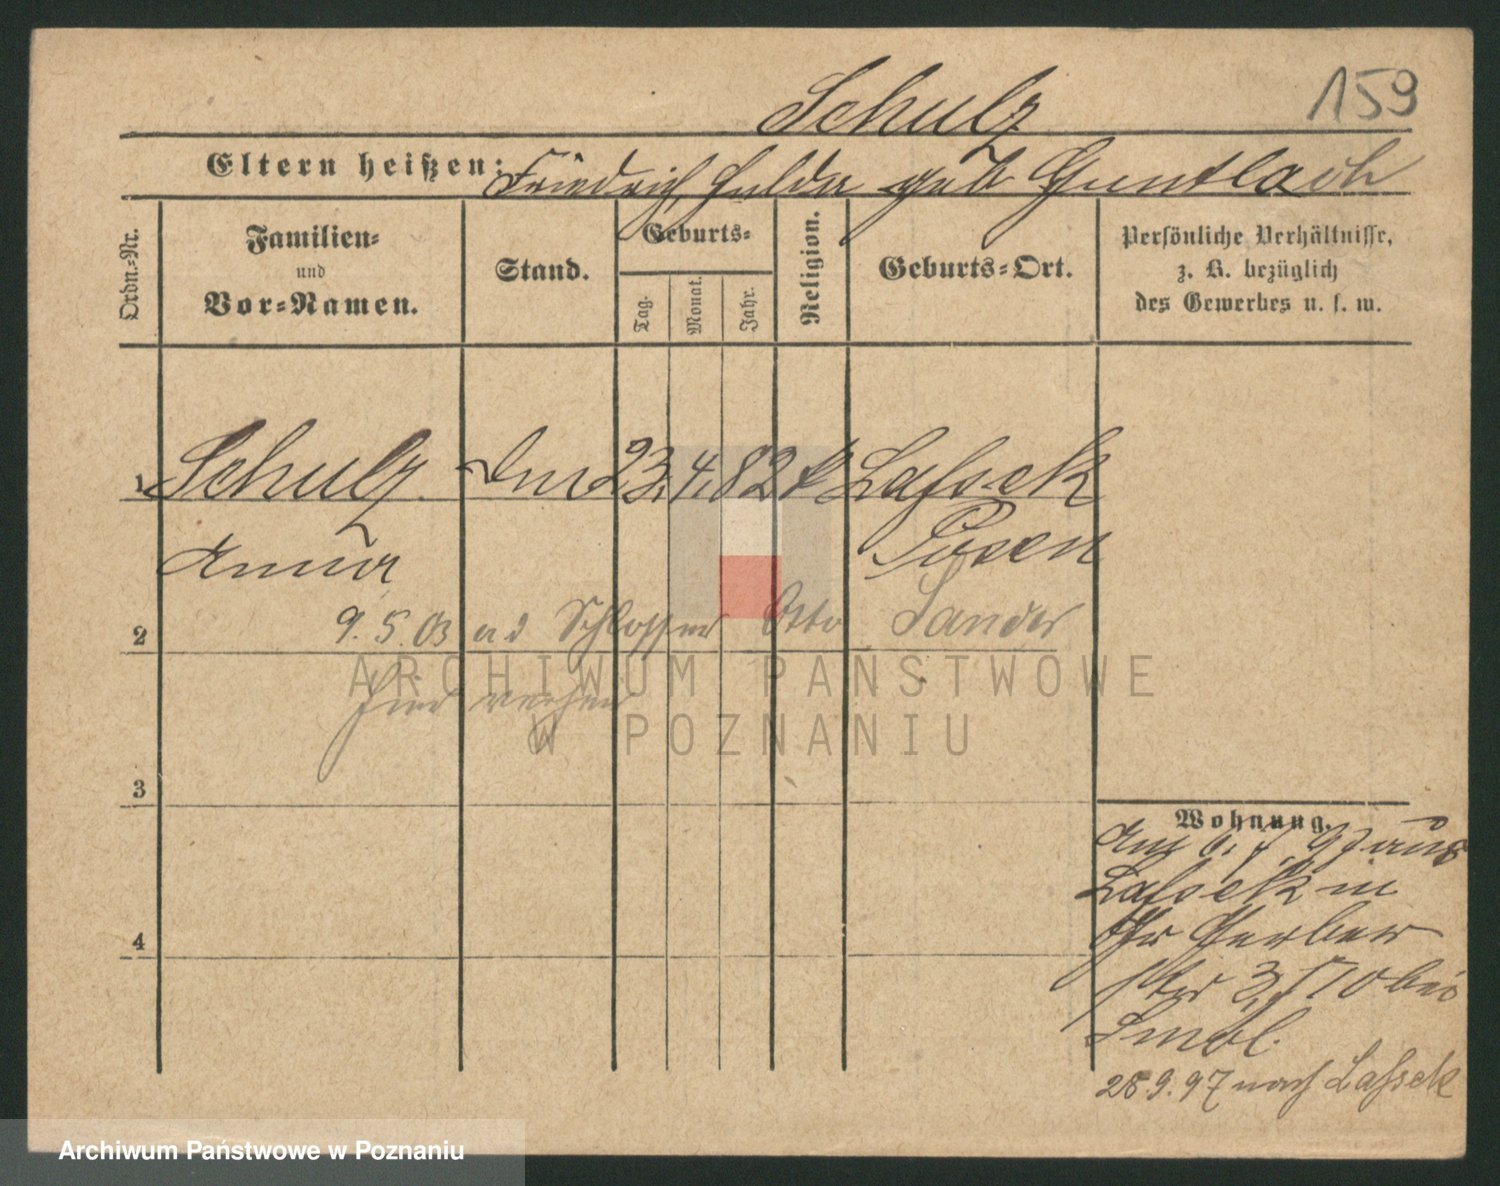 159
Schulz
Eltern heißen: Friedrich, Hulda geb Guntlach
Ordn.-Nr.
Familien- und Vor-Namen.
Stand.
Geburts-
Tag.
Monat.
Jahr.
Religion.
Geburts-Ort.
Persönliche Verhältnisse,
z. B. bezüglich
des Gewerbes u. s. w.
1 Schulz 23. 4. 82 Lassek
Anna Posen
2 9. 5. 03 Schlosser Otto Sander
3
4
Wohnung.
aus
Lassek in
Gr Gerber
str 3, bei
28.9.97 nach Lassek
ARCHIWUM PAŃSTWOWE
W POZNANIU
Archiwum Państwowe w Poznaniu